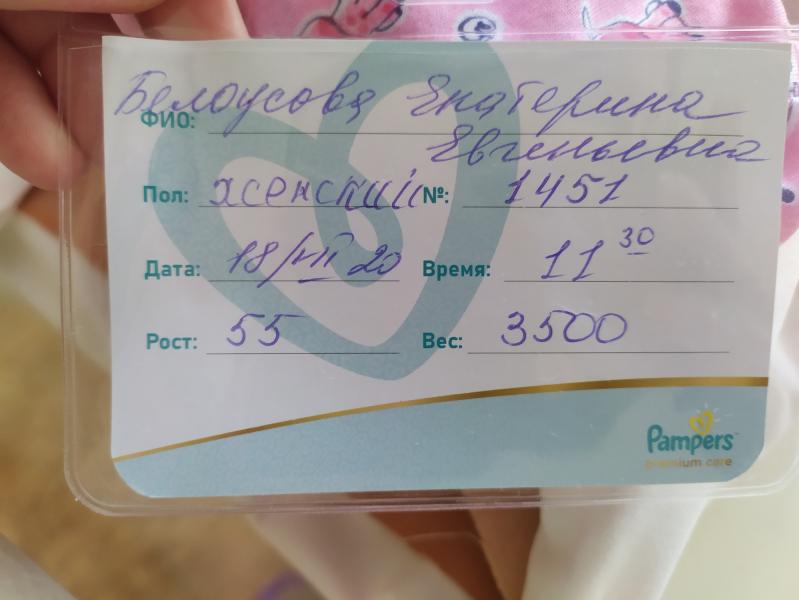 Белоусова Екатерина
ФИО:
Евгеньевна
Пол: женский №: 1451
Дата: 18/VII 20 Время: 11 30
Рост: 55 Вес: 3500
Pampers
premium care